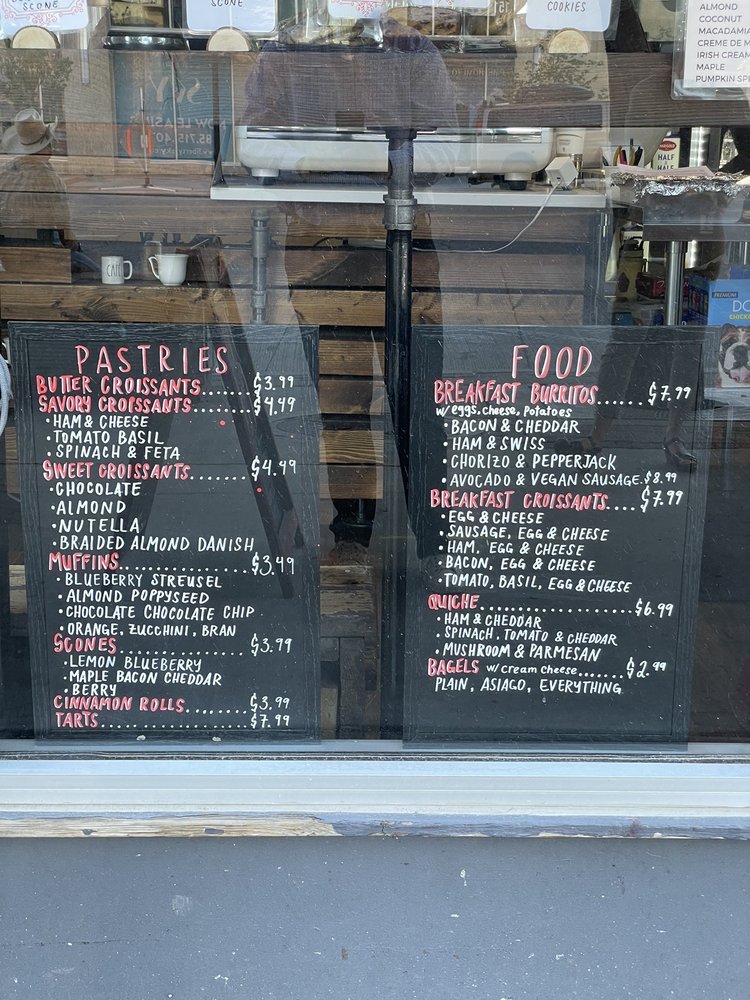 SCONE
SCONE
COOKIES
ALMOND
COCONUT
MACADAMIA
CREME DE M
IRISH CREAM
MAPLE
PUMPKIN SP
HALF
HALF
CAFÉ
PREMIUM
DO
CHICK
PASTRIES
BUTTER CROISSANTS......$3.99
SAVORY CROISSANTS........$4.49
• HAM & CHEESE
• TOMATO BASIL
• SPINACH & FETA
SWEET CROISSANTS........$4.49
• CHOCOLATE
• ALMOND
• NUTELLA
• BRAIDED ALMOND DANISH
MUFFINS.................$3.49
• BLUEBERRY STREUSEL
• ALMOND POPPYSEED
• CHOCOLATE CHOCOLATE CHIP
• ORANGE, ZUCCHINI, BRAN
SCONES.................$3.99
• LEMON BLUEBERRY
• MAPLE BACON CHEDDAR
BERRY
CINNAMON ROLLS........$3.99
TARTS....................$7.99
FOOD
BREAKFAST BURRITOS......$7.99
w/eggs, cheese, potatoes
• BACON & CHEDDAR
• HAM & SWISS
CHORIZO & PEPPERJACK
• AVOCADO & VEGAN SAUSAGE.$8.99
BREAKFAST CROISSANTS....$7.99
• EGG & CHEESE
• SAUSAGE, EGG & CHEESE
• HAM, EGG & CHEESE
BACON, EGG & CHEESE
• TOMATO, BASIL, EGG & CHEESE
QUICHE......................$6.99
• HAM & CHEDDAR
• SPINACH, TOMATO & CHEDDAR
• MUSHROOM & PARMESAN
BAGELS w/cream cheese.......$2.99
PLAIN, ASIAGO, EVERYTHING